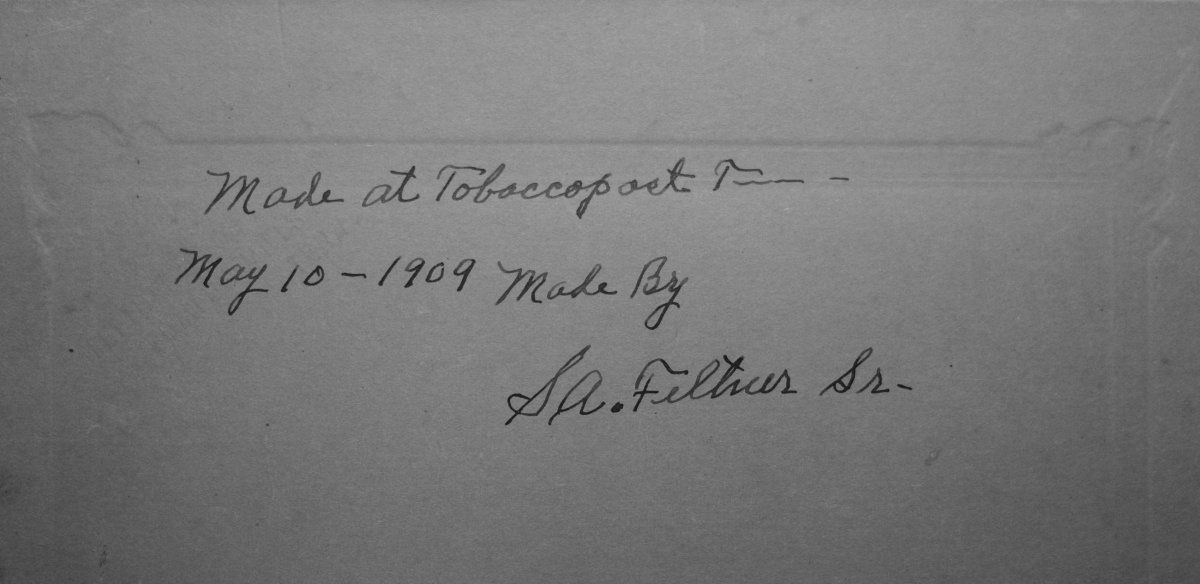 Made at Tobaccoport T---- -
May 10 - 1909 Made By
S.A. Feltner Sr-